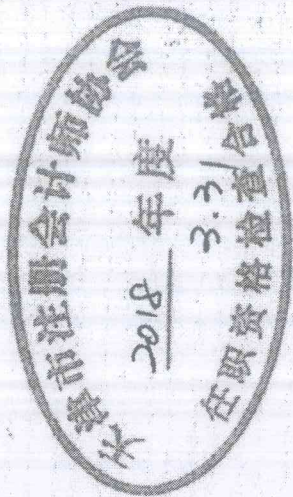 天津市注册会计师协会
2018 年度
3.31
任职资格检查合格